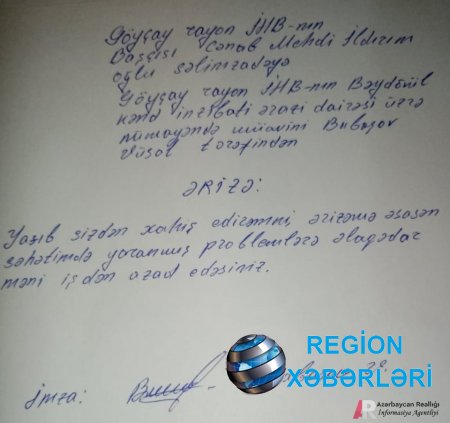 Göyçay rayon İHB-nın
Başçısı Cənab Mehdi İldırım
oğlu Səlimzadəyə
Göyçay rayon İHB-nın Bəydövül
kənd inzibati ərazi dairəsi üzrə
nümayəndə müavini Babaşov
Vüsal tərəfindən
ƏRİZƏ:
Yazıb sizdən xahiş edirəmki, ərizəmə əsasən
səhətimdə yaranmış problemlərə əlaqədar
məni işdən azad edəsiniz.
REGİON
XƏBƏRLƏRİ
İmza:
Azərbaycan Reallığı
İnformasiya Agentliyi